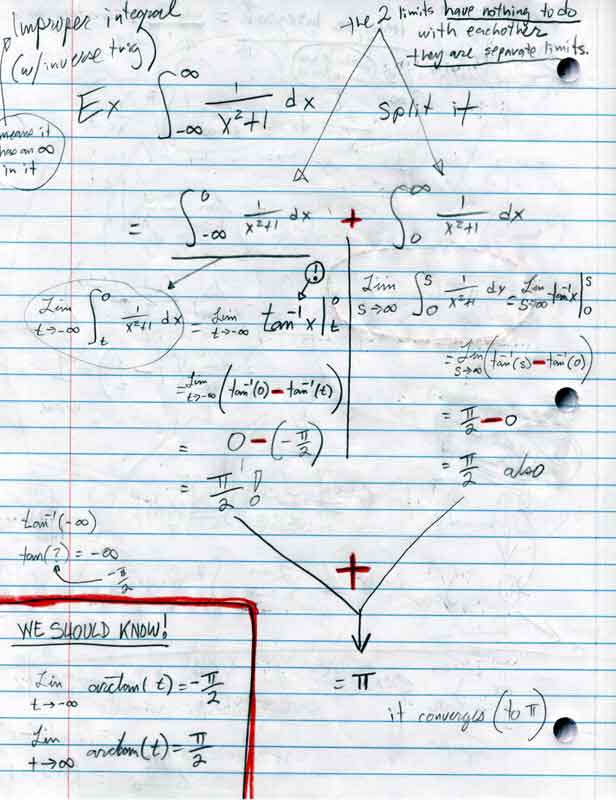 Improper integral
(w/inverse trig)
means it
has an ∞
in it
the 2 limits have nothing to do
with eachother
they are separate limits.
Ex ∫_{-∞}^{∞} 1/(x²+1) dx split it
= ∫_{-∞}^{0} 1/(x²+1) dx + ∫_{0}^{∞} 1/(x²+1) dx
!
Lim_{t→-∞} ∫_{t}^{0} 1/(x²+1) dx = Lim_{t→-∞} tan⁻¹x |_{t}^{0}
= Lim_{t→-∞} (tan⁻¹(0) - tan⁻¹(t))
= 0 - (-π/2)
= π/2 !
Lim_{s→∞} ∫_{0}^{s} 1/(x²+1) dx = Lim_{s→∞} tan⁻¹x |_{0}^{s}
= Lim_{s→∞} (tan⁻¹(s) - tan⁻¹(0))
= π/2 - 0
= π/2 also
tan⁻¹(-∞)
tan(?) = -∞
-π/2
+
= π
it converges (to π)
WE SHOULD KNOW!
Lim_{t→-∞} arctan(t) = -π/2
Lim_{t→∞} arctan(t) = π/2